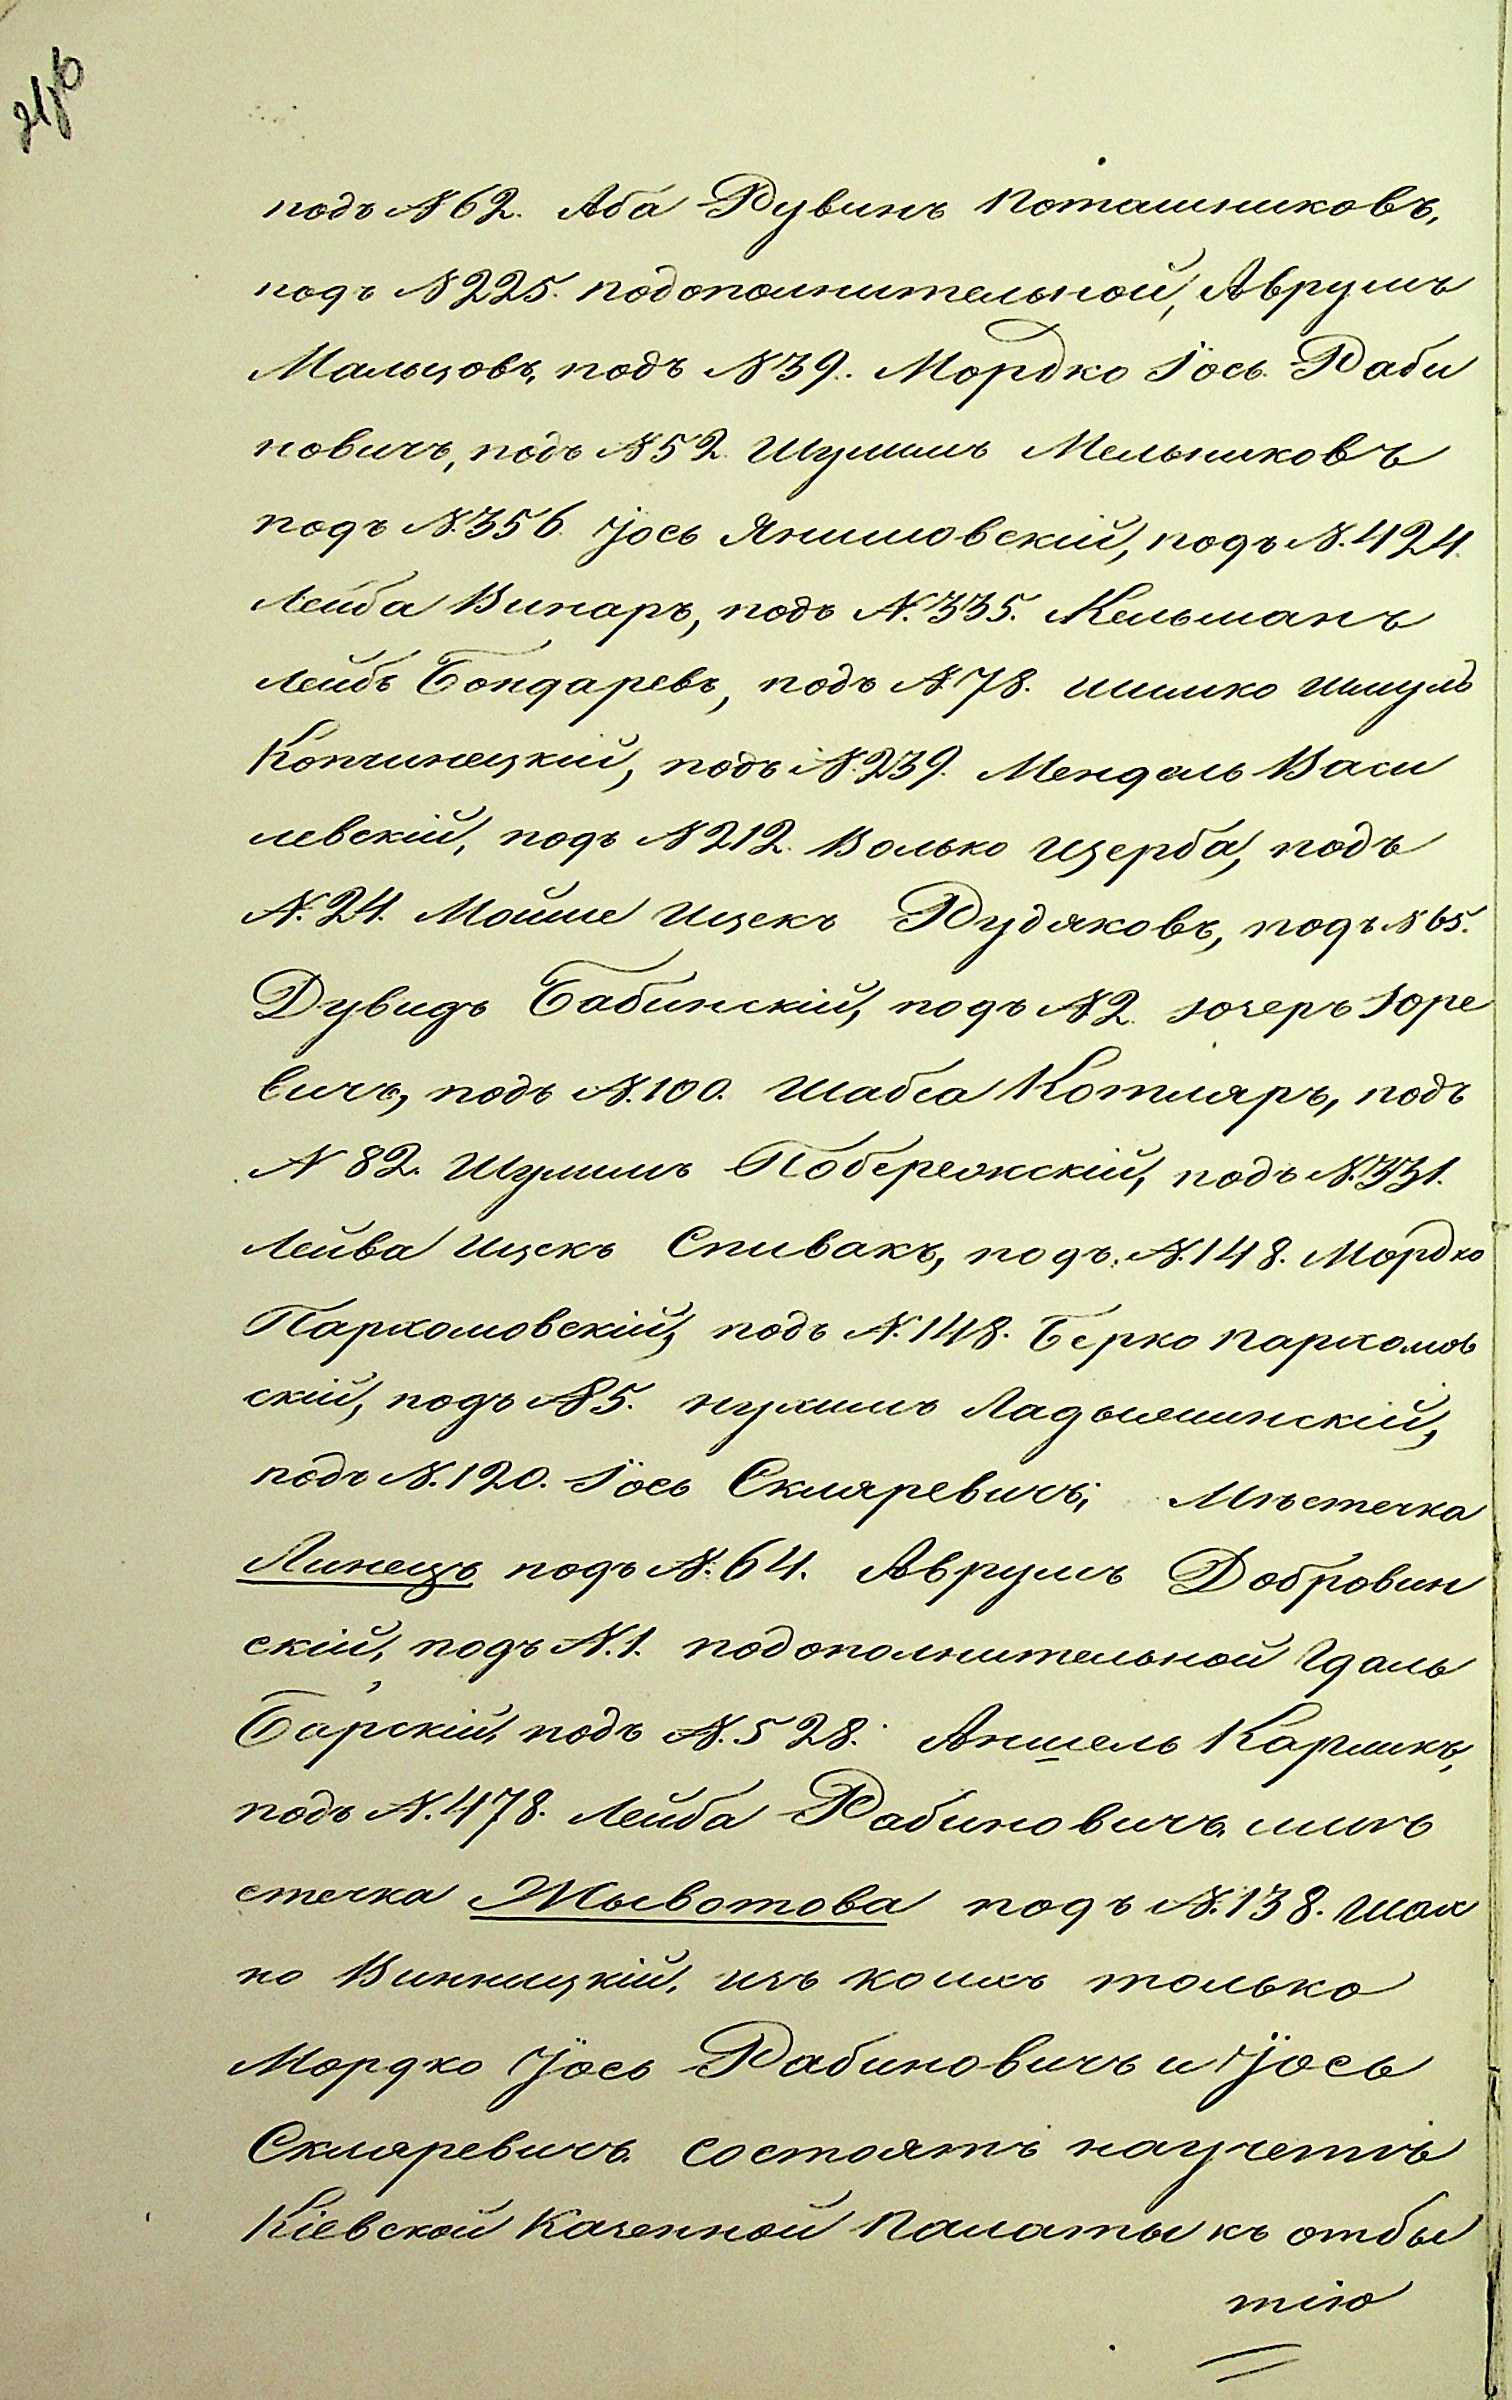 подъ №62. Аба Рувинъ Поташниковъ,
подъ №225. подополнительной, Аврумъ
Мальцовъ, подъ №39. Мордко Іось Раби
новичъ, подъ №52 Шулимъ Мельниковъ
подъ №.356 Іось Янишовскій, подъ №.424.
Лейба Винаръ, подъ №.335. Кельманъ
Лейбъ Бондаревъ, подъ №78. Шимко Шмуль
Копчинецкій, подъ №.239. Мендель Васи
левскій, подъ №212. Волько Щерба, подъ
№.24. Мойше Ицекъ Рудяковъ, подъ №65.
Дувидъ Бабинскій, подъ №2 Іозеръ Юре
вичъ, подъ №.100. Шабса Котляръ, подъ
№ 82. Шулимъ Побережскій, подъ №.331.
Лейва Ицекъ Спивакъ, подъ №.148. Мордко
Пархомовскій, подъ №.148. Берко Пархомов
скій, подъ №5. Нухимъ Ладыжинскій,
подъ №.120. Іось Скляревичъ; Мѣстечка
Линецъ подъ №.64. Аврумъ Добровин
скій, подъ №.1. подополнительной Гдаль
Барскій, подъ №.528. Аншель Кармикъ,
подъ №.478. Лейба Рабиновичъ. мѣ
стечка Жывотова подъ №.138. Шах
но Винницкій, изъ коихъ только
Мордко Іось Рабиновичъ и Іось
Скляревичъ состоятъ научетѣ
Кіевской Казенной Палаты къ отбы
тію